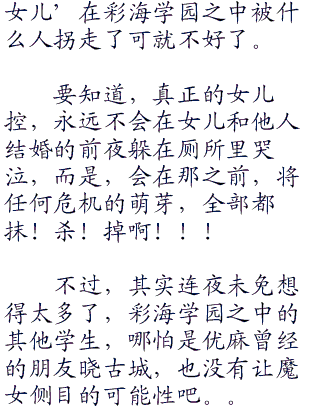 女儿’在彩海学园之中被什
么人拐走了可就不好了。
要知道，真正的女儿
控，永远不会在女儿和他人
结婚的前夜躲在厕所里哭
泣，而是，会在那之前，将
任何危机的萌芽，全部都
抹！杀！掉啊！！！
不过，其实连夜未免想
得太多了，彩海学园之中的
其他学生，哪怕是优麻曾经
的朋友晓古城，也没有让魔
女侧目的可能性吧。。